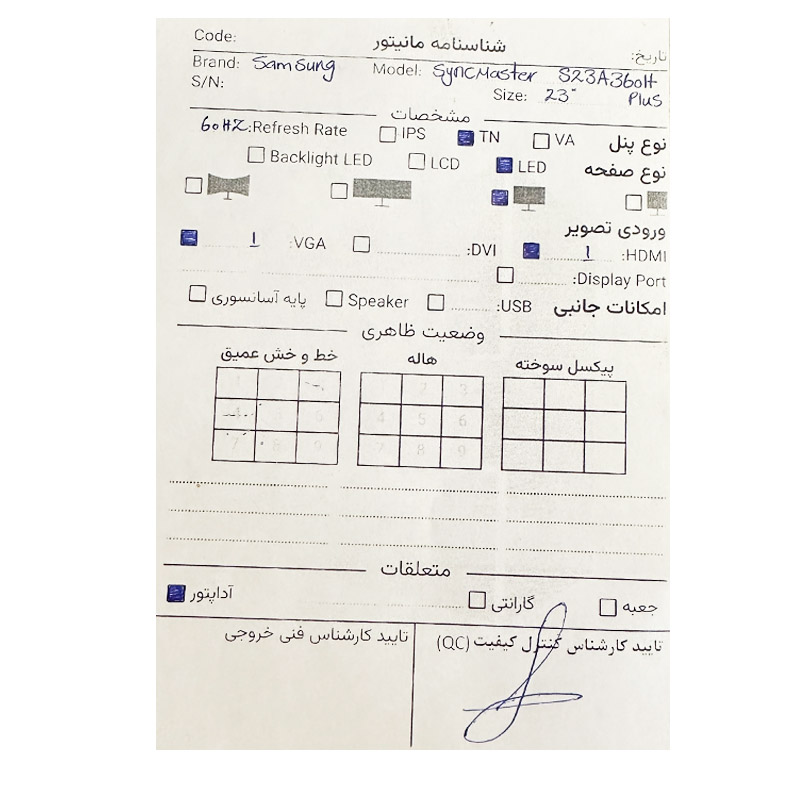 Code: شناسنامه مانیتور تاریخ:
Brand: Samsung Model: SyncMaster S23A360H Plus
S/N: Size: 23"
مشخصات
نوع پنل VA TN IPS Refresh Rate: 60HZ
نوع صفحه LED LCD Backlight LED
ورودی تصویر
HDMI: 1 DVI: VGA: 1
Display Port:
امکانات جانبی USB: Speaker پایه آسانسوری
وضعیت ظاهری
پیکسل سوخته هاله خط و خش عمیق
1 2 3 1
4 5 6 4 5 6
7 8 9 7 8 9
متعلقات
جعبه گارانتی آداپتور
تایید کارشناس کنترل کیفیت (QC) تایید کارشناس فنی خروجی